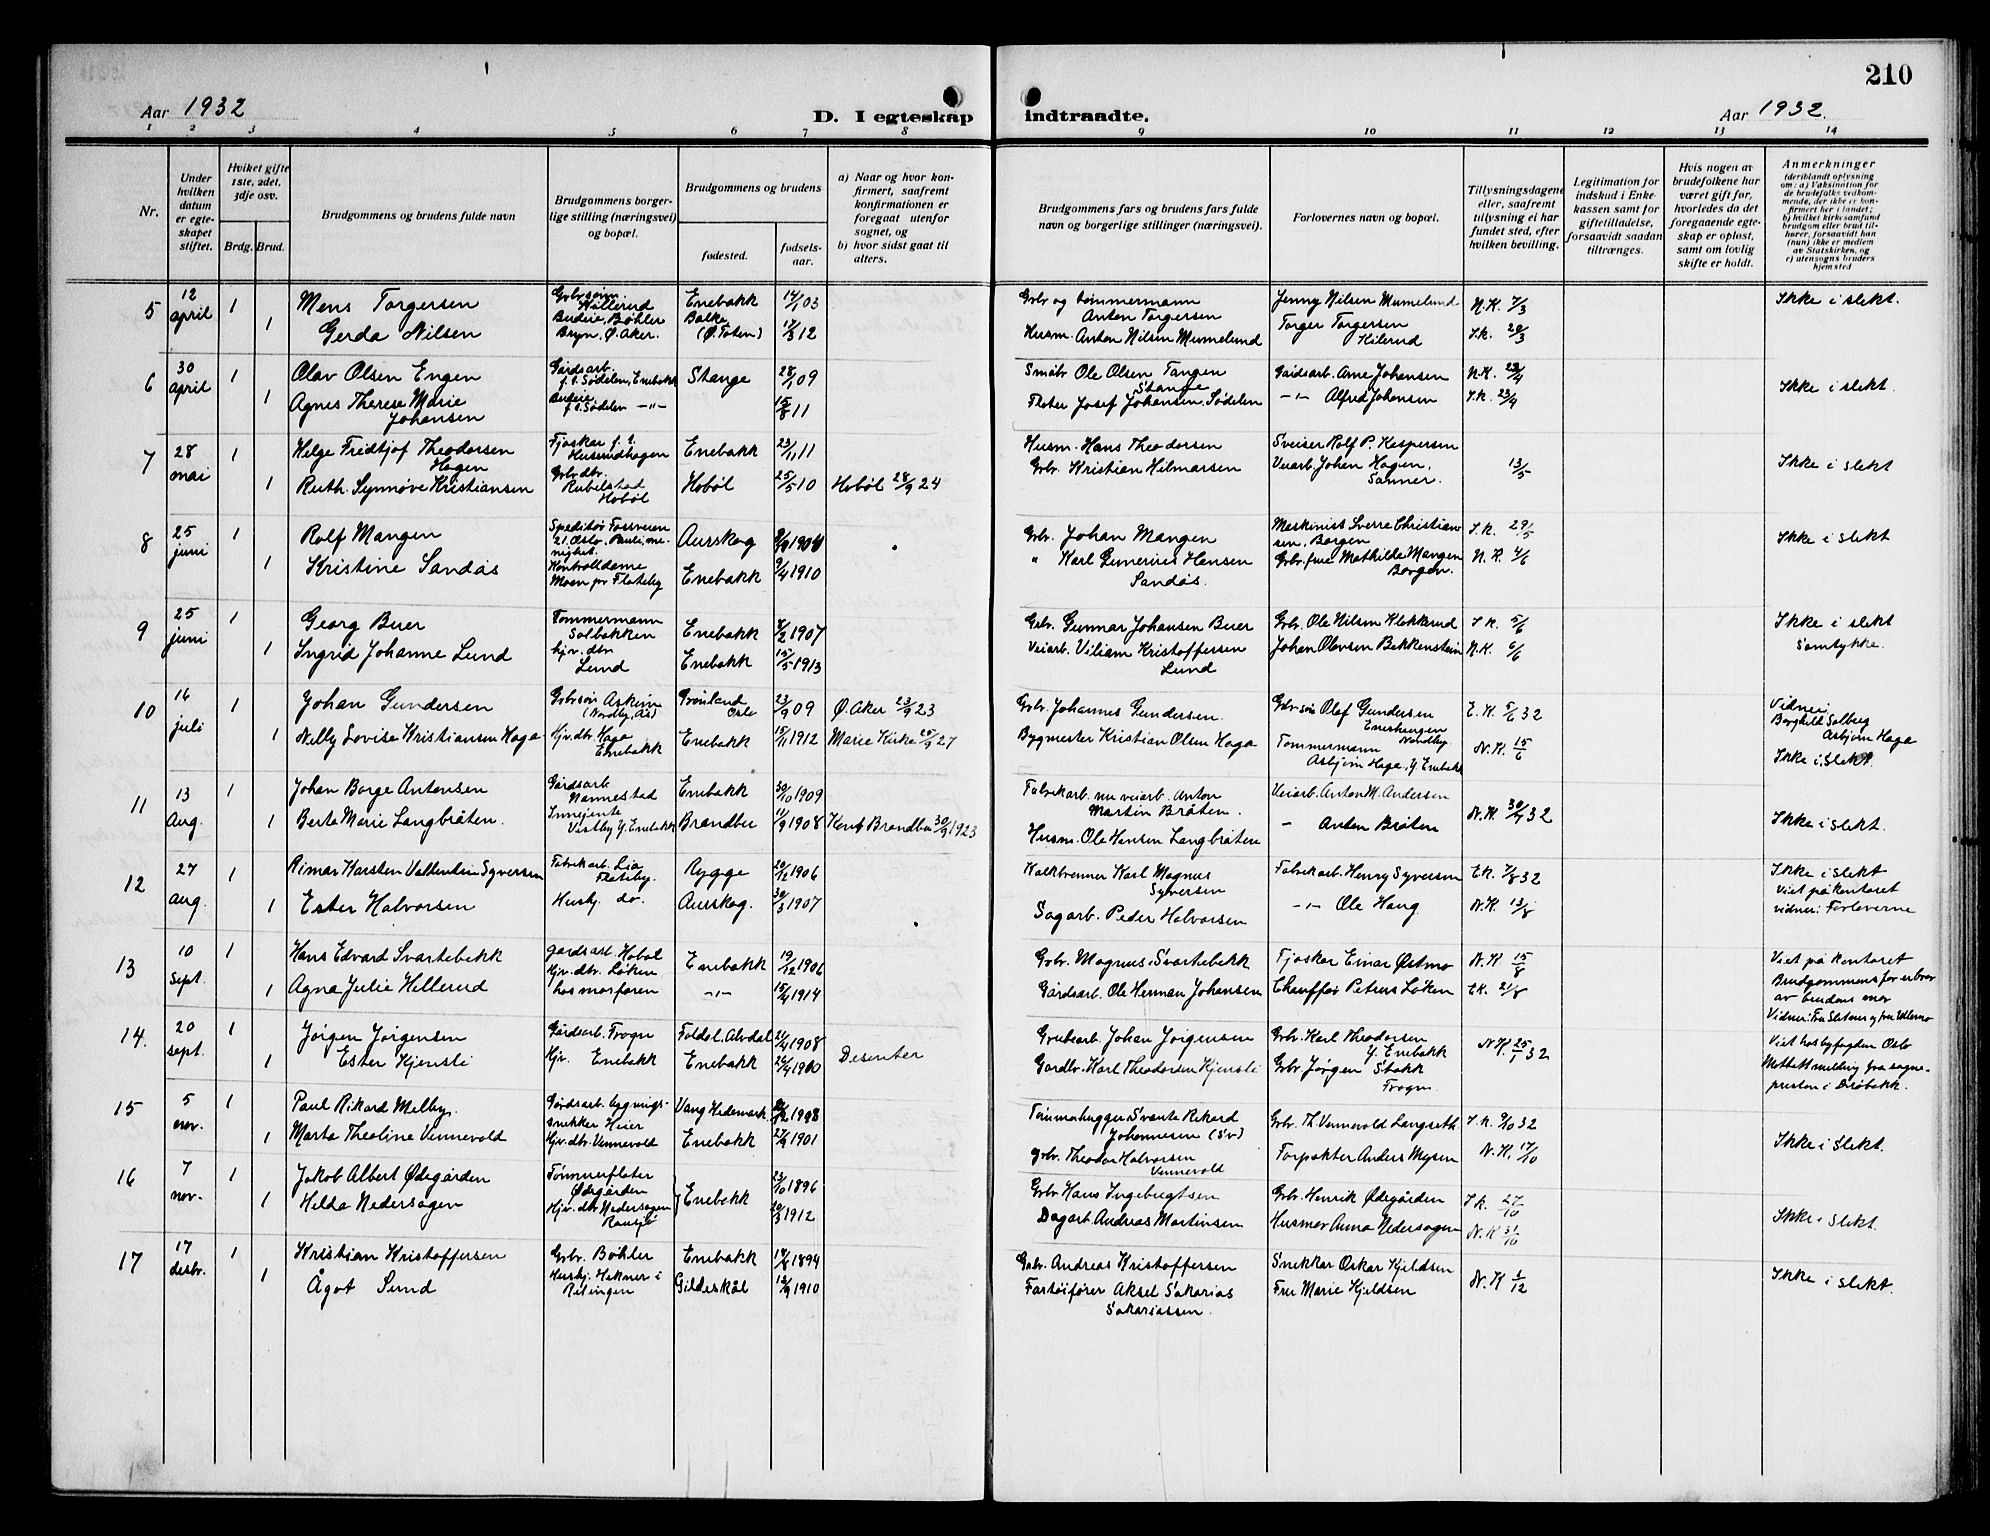 210
Aar 1932
D. I egteskap
indtraadte.
Aar 1932.
1 2 3 4 5 6 7 8 9 10 11 12 13 14
Nr.
Under hvilken datum er egteskapet stiftet.
Hviket gifte 1ste, 2det, 3dje osv.
Brdg. Brud.
Brudgommens og brudens fulde navn
Brudgommens borgerlige stilling (næringsvei) og bopæl.
Brudgommens og brudens
fødested.
fødselsaar.
a) Naar og hvor konfirmert, saafremt konfirmationen er foregaat utenfor sognet, og
b) hvor sidst gaat til alters.
Brudgommens fars og brudens fars fulde navn og borgerlige stillinger (næringsvei).
Forlovernes navn og bopæl.
Tillysningsdagene eller, saafremt tillysning ei har fundet sted, efter hvilken bevilling.
Legitimation for indskud i Enkekassen samt for giftetilladelse, forsaavidt saadan tiltrænges.
Hvis nogen av brudefolkene har været gift før, hvorledes da det foregaaende egteskap er opløst, samt om lovlig skifte er holdt.
Anmerkninger
(deriblandt oplysning om: a) Vaksination for de brudefolks vedkommende, der ikke er konfirmert her i landet; b) hvilket kirkesamfund brudgom eller brud tilhører, forsaavidt han (hun) ikke er medlem av Statskirken, og c) utensogns bruders hjemsted
5 12 april 1 Mens Torgersen Grbr.søn Enebakk 14/1 03 Grbr og tømmermann Anton Torgersen Jenny Nilsen Mumelund N.K. 7/3 Ikke i slekt.
1 Gerda Nilsen Budeie, Bøhler Bryn, Ø. Aker. Balke (Ø. Toten) 17/3 12 Husm. Anton Nilsen Mumelund Torger Torgersen Kilerud S.K. 20/3
6 30 april 1 Olav Olsen Engen Gårdsarb. f.t. Sødelen, Enebakk Stange 28/1 09 Småbr Ole Olsen Tangen Stange Gårdsarb. Arne Johansen N.K. 23/4 Ikke i slekt.
1 Agnes Therese Marie Johansen Budeie f.t. Sødelen -"- 15/8 11 Fløter Josef Johansen, Sødelen -"- Alfred Johansen S.K. 23/4
7 28 mai 1 Helge Fridtjof Theodorsen Hagen Fjøskar f.t. Husmdhagen Enebakk 23/11 11 Husm. Hans Theodorsen Sveiser Rolf P. Kaspersen 13/5 Ikke i slekt
1 Ruth Synnøve Kristiansen Grbr.dtr. Rubelstad Hobøl Hobøl 25/5 10 Hobøl 28/9 24 Grbr. Kristian Hilmarsen Veiarb. Johan Hagen, Sanner.
8 25 juni 1 Rolf Mangen Speditør Fossveien 21. Oslo. Pauli menighet. Aurskog 9/9 1904 Grbr. Johan Mangen Maskinist Sverre Christiansen, Borgen S.K. 29/5 Ikke i slekt
1 Kristine Sandås Kontrolldame Moen pr Flateby Enebakk 9/4 1910 " Karl Gunerius Hansen Sandås. Grbr. frue Mathilde Mangen Borgen. N.K. 4/6
9 25 juni 1 Georg Buer Tømmermann Solbakken Enebakk 7/2 1907 Grbr. Gunnar Johansen Buer Grbr. Ole Nilsen Klokkerud S.K. 5/6 Ikke i slekt
1 Ingrid Johanne Lund hjv. dtr Lund Enebakk 15/5 1913 Veiarb. Viliam Kristoffersen Lund Johan Olavsen Bekkenstein N.K. 6/6 Samtykke.
10 16 juli 1 Johan Gundersen Grbr.søn Askim (Nordby, Ås) Grønland Oslo 23/9 09 Ø. Aker 23/9 23 Grbr. Johannes Gundersen. Grbr.søn Olaf Gundersen Nordby. E.K. 5/6 32 Vidner: Borghild Solberg Asbjørn Haga
1 Nelly Lovise Kristiansen Haga Hjv. dtr. Haga Enebakk Enebakk 15/11 1912 Marie Kirke 25/9 27 Bygmester Kristian Olsen Haga Tømmermann Asbjørn Haga, Y. Enebakk N.K. 15/6 Ikke i slekt.
11 13 Aug. 1 Johan Borge Antonsen Gårdsarb. Nannestad Enebakk 30/10 1909 Fabrikarb. nu veiarb. Anton Martin Bråten. Veiarb. Anton M. Andersen N.K. 30/7 32 Ikke i slekt.
1 Berta Marie Langbråten. Innejente Vestby Y. Enebakk Brandbu 11/9 1908 Konf. Brandbu 30/9 1923 Husm. Ole Hansen Langbråten - Anton Bråten
12 27 Aug. 1 Rimar Karsten Vallentin Syversen Fabrikarb. Lia Flateby. Rygge 20/12 1906 Kalkbrenner Karl Magnus Syversen Fabrikarb. Henry Syversen E.K. 7/8 32 Ikke i slekt
1 Ester Halvorsen Hushj. do. Aurskog. 30/3 1907 Sagarb. Peder Halvorsen -"- Ole Haug N.K. 13/8 Viet på kontoret vidner: Forloverne
13 10 sept. 1 Hans Edvard Svartebekk gårdsarb. Hobøl Enebakk 19/12 1906 Grbr. Magnus Svartebekk Fjøskar Einar Østmo N.K. 15/8 Viet på kontoret
1 Agna Julie Hellerud Hjv. dtr. Løken hos morfaren -"- 15/4 1914 Gårdsarb. Ole Herman Johansen Chauffør Petrus Løken E.K. 21/8 Brudgommens far er bror av brudens mor
14. 20 sept. 1 Jørgen Jørgensen Gårdsarb. Frogn Foldal. Alvdal 21/4 1908 Grubearb. Johan Jørgensen Grbr. Karl Theodorsen Y. Enebakk N.K. 25/1 32 Viet hos byfogden Oslo
1 Ester Kjensli Hjv. Enebakk Enebakk 26/4 1900 Desenter Gardbr. Karl Theodorsen Kjensli Grbr. Jørgen Stokk Frogn. Mottatt melding fra sognepresten i Drøbakk.
15 5 nov. 1 Paul Rikard Melby. Gårdsarb. bygningssnikker Heier Vang Hedemark. Tømmerhugger Svante Rikard Johannesen (Sv) Grbr. Th. Vennevold Langseth S.K. 9/10 32 Ikke i slekt.
1 Marta Theoline Vennevold Hjv. dtr. Vennevold Enebakk 27/9 1901 Grbr. Theodor Halvorsen Vennevold Forpakter Anders Mysen N.K. 17/10
16 7 nov. 1 Jakob Albert Ødegården Tømmerfløter Ødegården Enebakk 23/10 1896 Grbr Hans Ingebrigtsen Grbr. Henrik Ødegården S.K. 27/10 Ikke i slekt.
1 Hilda Nedersagen Hjv. dtr. Nedersagen 20/3 1912 Dagarb. Andreas Martinsen Husmor Anna Nedersagen N.K. 31/10
17 17 desbr. 1 Kristian Kristoffersen Grbr. Bøhler Enebakk 14/8 1894 Grbr. Andreas Kristoffersen Snekkar Oskar Kjeldsen N.K. 1/12 Ikke i slekt.
1 Ågot Sund Hushj. Hakner i Relingen Gildeskål 12/9 1910 Fartøifører Aksel Sakarias Sakariassen. Fru Marie Kjeldsen